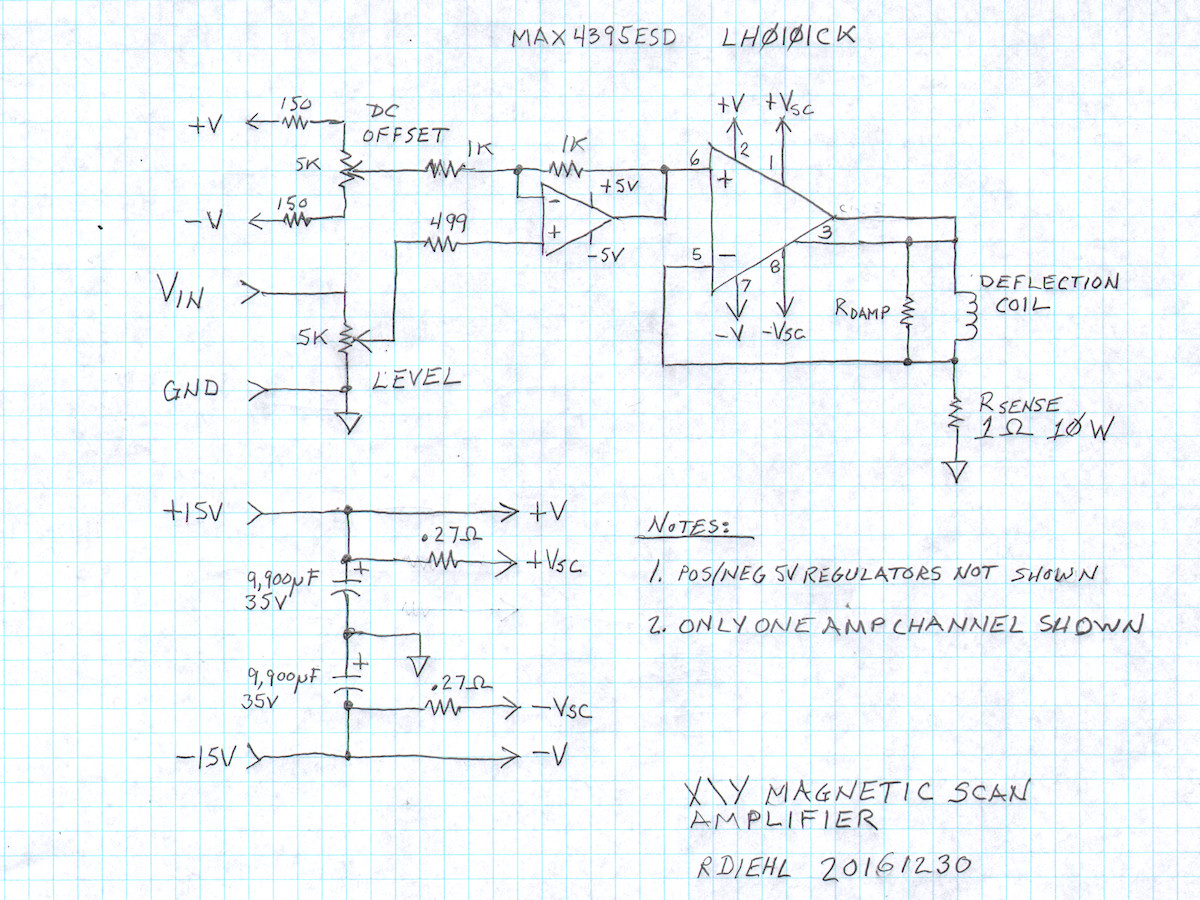 MAX4395ESD LHØ1Ø1CK
150
DC
OFFSET
+V
5K
1K
1K
150
-V
499
-
+
+5V
-5V
+V +VSC
6
2
1
+
3
5
-
8
7
-V -VSC
RDAMP
DEFLECTION
COIL
VIN
5K
GND
LEVEL
RSENSE
1Ω 1ØW
+15V
+V
.27Ω
+VSC
+
9,900µF
35V
+
9,900µF
35V
.27Ω
-VSC
-15V
-V
NOTES:
1. POS/NEG 5V REGULATORS NOT SHOWN
2. ONLY ONE AMP CHANNEL SHOWN
X\Y MAGNETIC SCAN
AMPLIFIER
RDIEHL 20161230